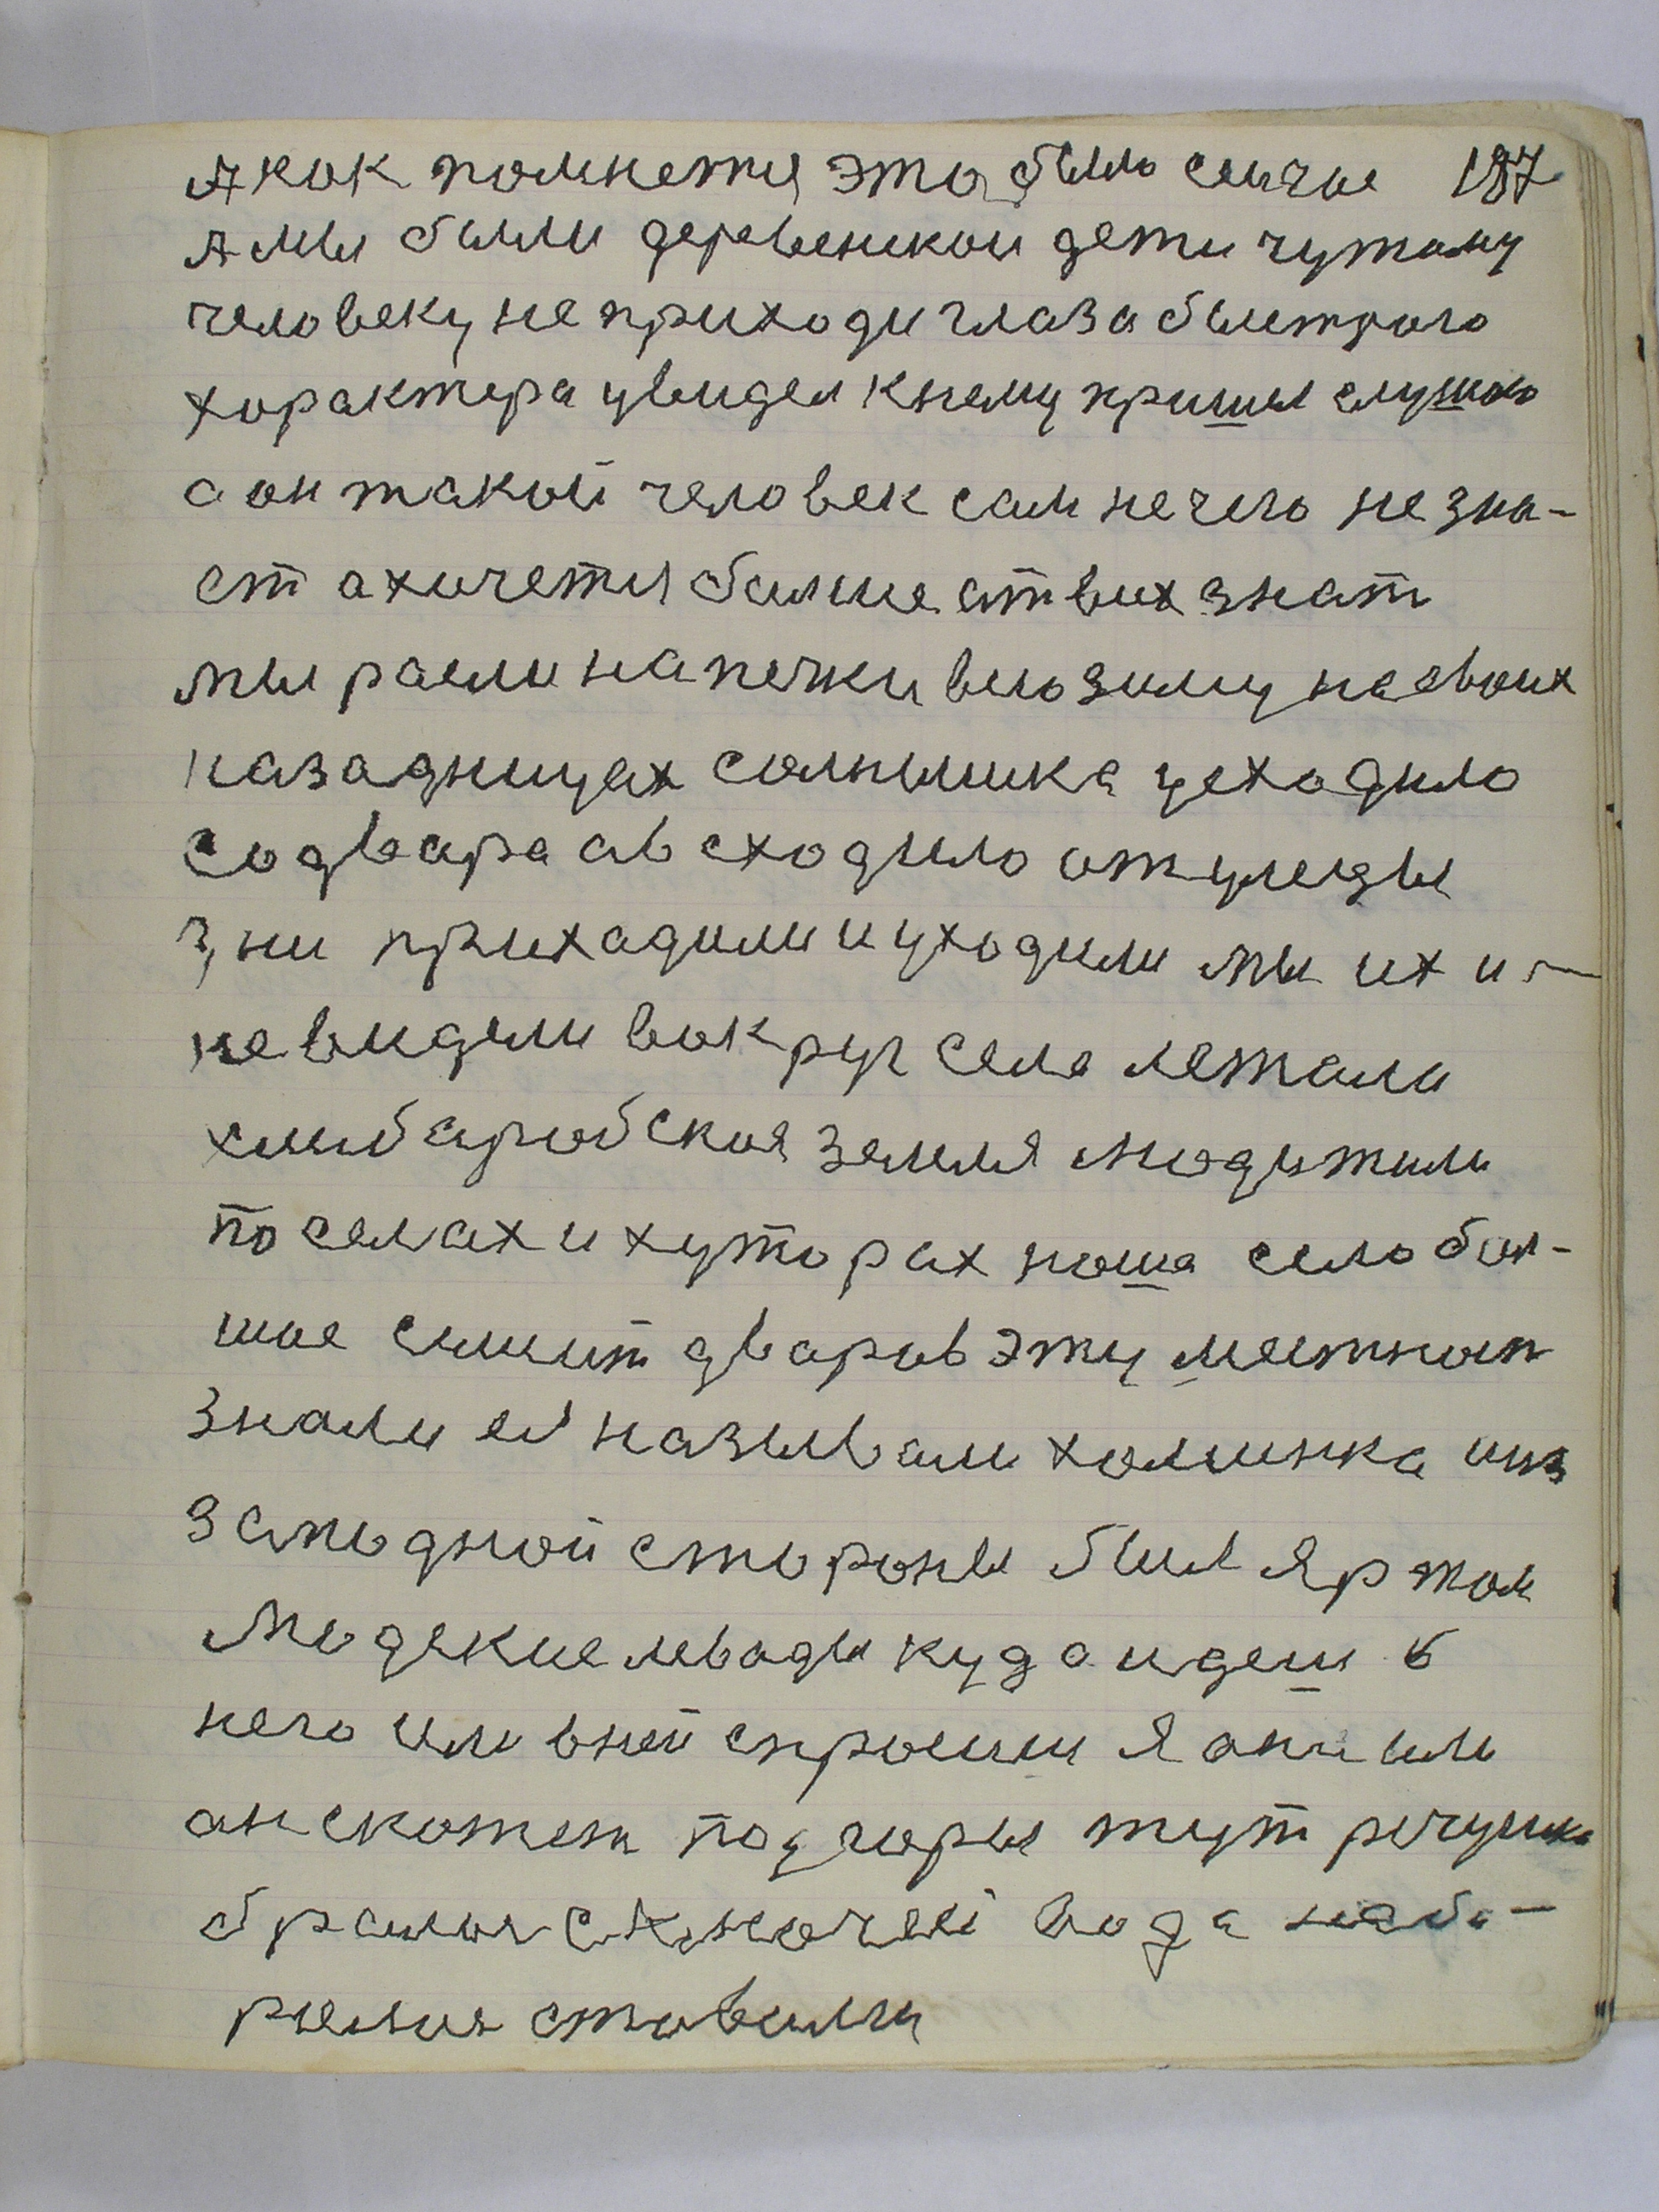 А как помнетця это было 187
А мы были деревенскои дети чужому
человеку не приходи глаза быстрого
характера увидел к нему пришел слушаю
а он такой человек сам нечего не зна-
ет а хочетця болше ат всих знат
мы расли на печки всю зиму на своих
на задницах солнышка уеходило
со двара а всходило отулецы
Дни прихадили и уходили мы их и
не видели вокруг села лежала
хлибаробская земля люди жили
по селах и хуторах наша село бол-
шое дваров эту местност
знали её называли из
западной стороны был Яр жол
людские левады куда идеш в
него или в ней спросиш Я или
он скажет под горы тут речушка
бралася с ключей вода наби-
ралася